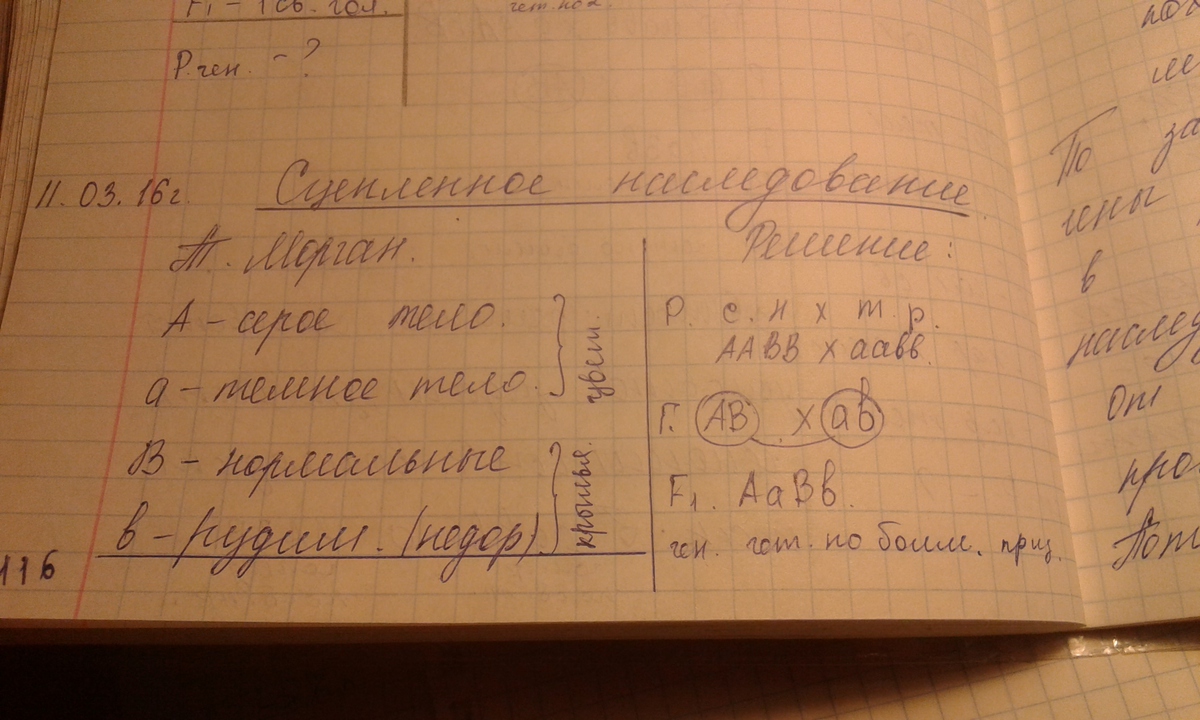 F₁ – 1 св. гол.
P. ген. – ?
11.03.16г. Сцепленное наследование
Т. Морган.
А – серое тело.
а – темное тело.
цвет.
В – нормальные
в – рудим. (недор)
крылья.
116
Решение:
Р. с. н х т. р.
ААВВ х аавв.
Г. АВ х ав
F₁. АаВв.
ген. гет. по
по
ген. за
гены
в
наслед
от